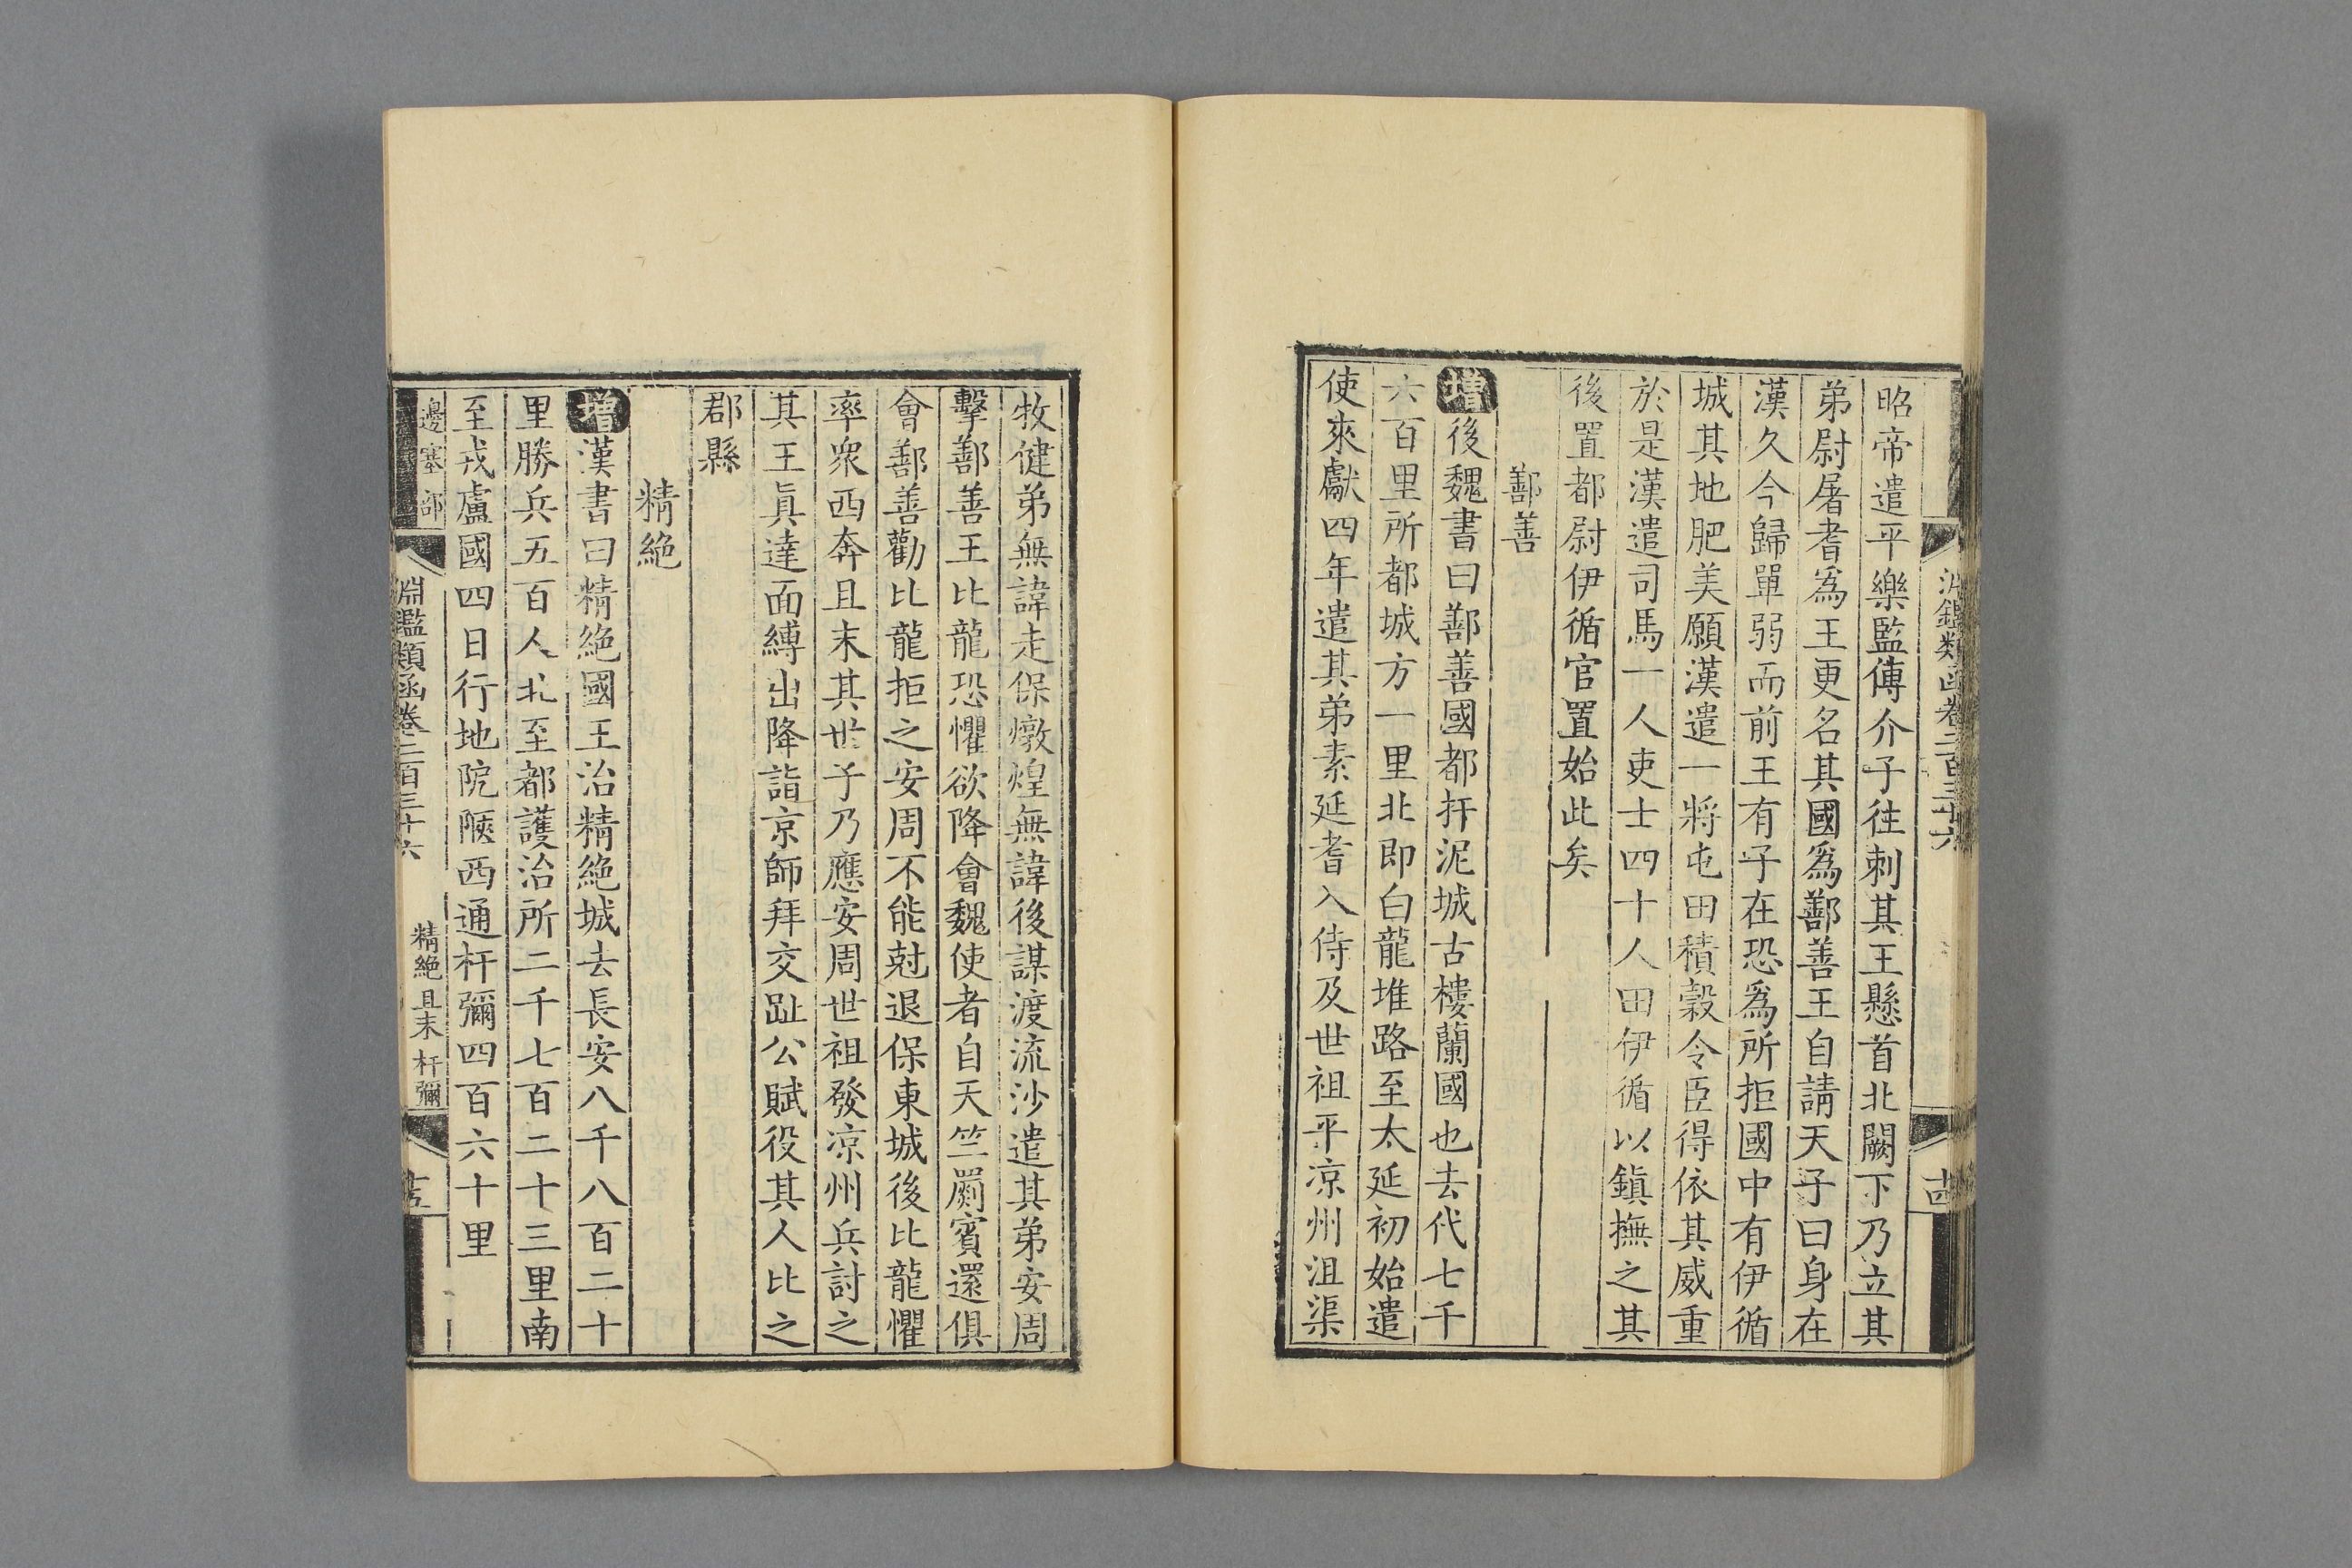 淵鑑類函卷二百三十六
十四
昭帝遣平樂監傳介子往刺其王懸首北闕下乃立其
弟尉屠耆爲王更名其國爲鄯善王自請天子曰身在
漢久今歸單弱而前王有子在恐爲所拒國中有伊循
城其地肥美願漢遣一將屯田積穀令臣得依其威重
於是漢遣司馬一人吏士四十人田伊循以鎭撫之其
後置都尉伊循官置始此矣
鄯善
增後魏書曰鄯善國都扞泥城古樓蘭國也去代七千
六百里所都城方一里北即白龍堆路至太延初始遣
使來獻四年遣其弟素延耆入侍及世祖平凉州沮渠
牧健弟無諱走保燉煌無諱後謀渡流沙遣其弟安周
擊鄯善王比龍恐懼欲降會魏使者自天竺罽賓還俱
會鄯善勸比龍拒之安周不能尅退保東城後比龍懼
率衆西奔且末其世子乃應安周世祖發凉州兵討之
其王眞達面縛出降詣京師拜交趾公賦役其人比之
郡縣
精絶
增漢書曰精絶國王治精絶城去長安八千八百二十
里勝兵五百人北至都護治所二千七百二十三里南
至戎盧國四日行地阸陿西通扜彌四百六十里
邊塞部
淵鑑類函卷二百三十六
精絶 且末 扜彌
十五